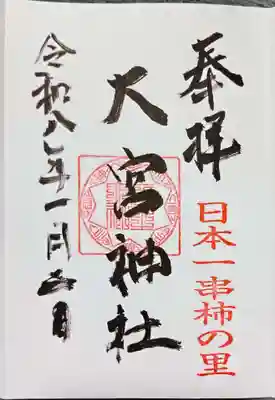 奉拝
日本一串柿の里
大宮神社
令和八年一月二日